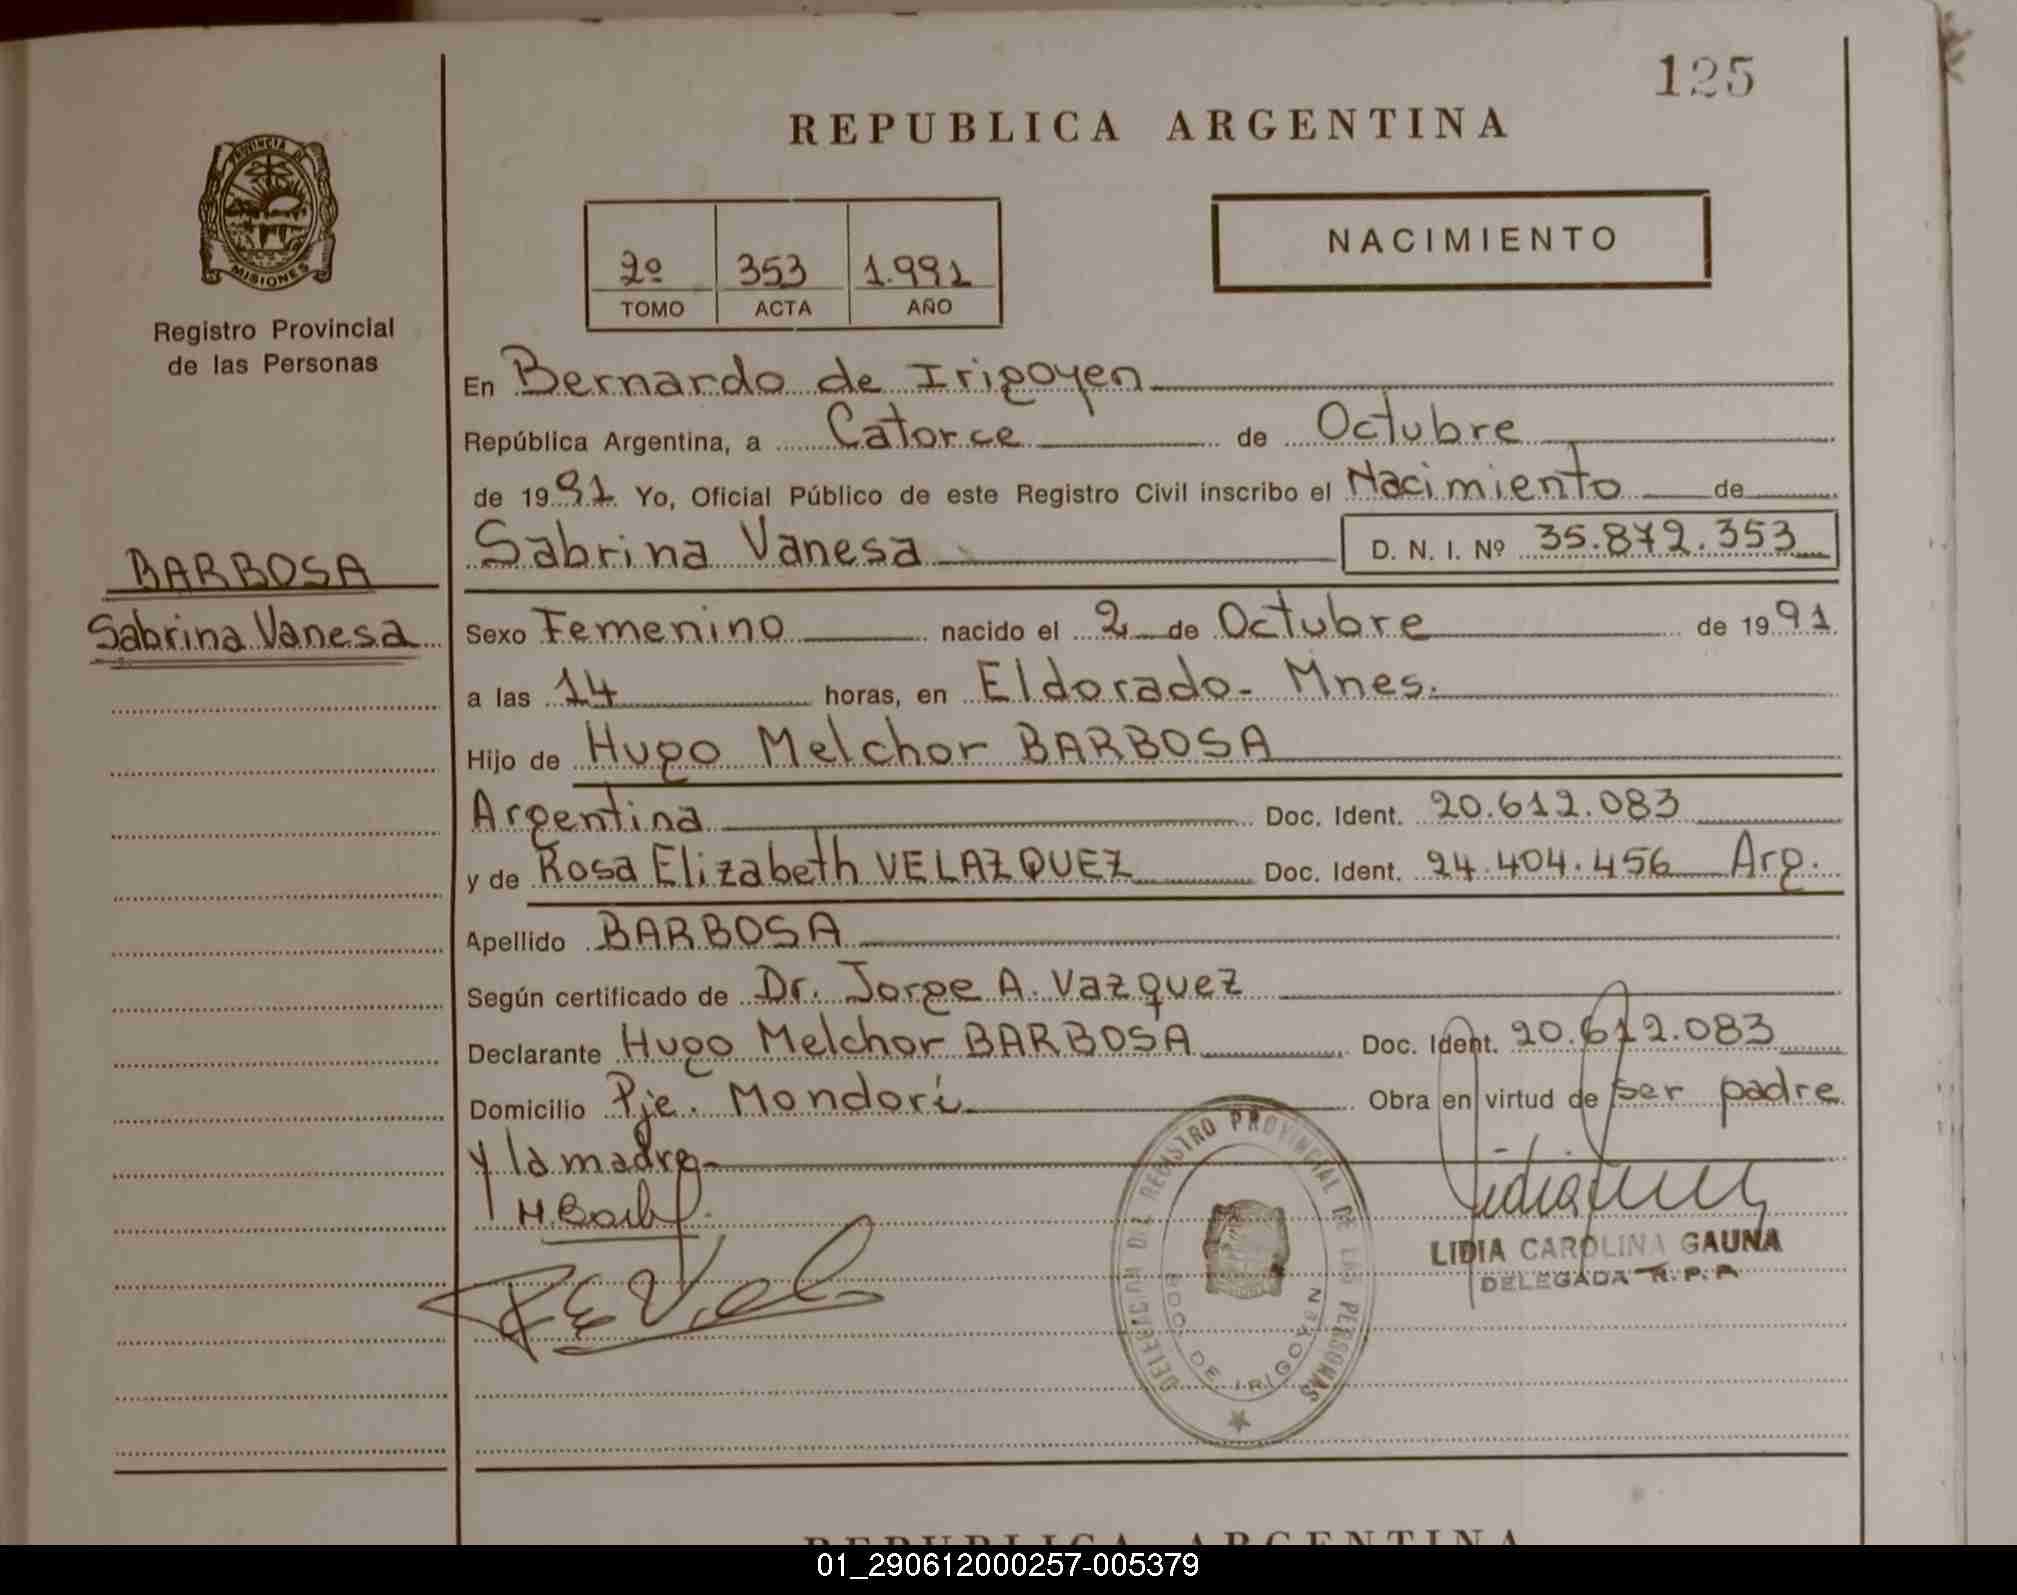 125
REPUBLICA ARGENTINA
PROVINCIA DE
MISIONES
Registro Provincial
de las Personas
2º 353 1.991
TOMO ACTA AÑO
NACIMIENTO
En Bernardo de Irigoyen
República Argentina, a Catorce de Octubre
de 1991 Yo, Oficial Público de este Registro Civil inscribo el Nacimiento de
Sabrina Vanesa D. N. I. Nº 35.872.353
BARBOSA
Sabrina Vanesa
Sexo Femenino nacido el 2 de Octubre de 1991
a las 14 horas, en Eldorado - Mnes.
Hijo de Hugo Melchor BARBOSA
Argentina Doc. Ident. 20.612.083
y de Rosa Elizabeth VELAZQUEZ Doc. Ident. 24.404.456 Arg.
Apellido BARBOSA
Según certificado de Dr. Jorge A. Vazquez
Declarante Hugo Melchor BARBOSA Doc. Ident. 20.612.083
Domicilio Pje. Mondorí Obra en virtud de ser padre
y la madre
DELEGACION DEL REGISTRO PROVINCIAL DE LAS PERSONAS
BDO. DE IRIGOYEN
LIDIA CAROLINA GAUNA
DELEGADA R.P.P.
REPUBLICA ARGENTINA
01_290612000257-005379